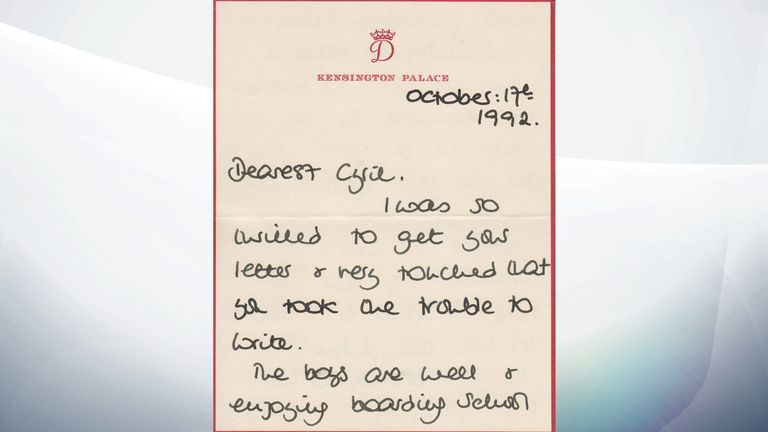 D
KENSINGTON PALACE
October: 17th
1992.
Dearest Cyril.
I was so
thrilled to get your
letter & very touched that
you took the trouble to
write.
The boys are well &
enjoying boarding school